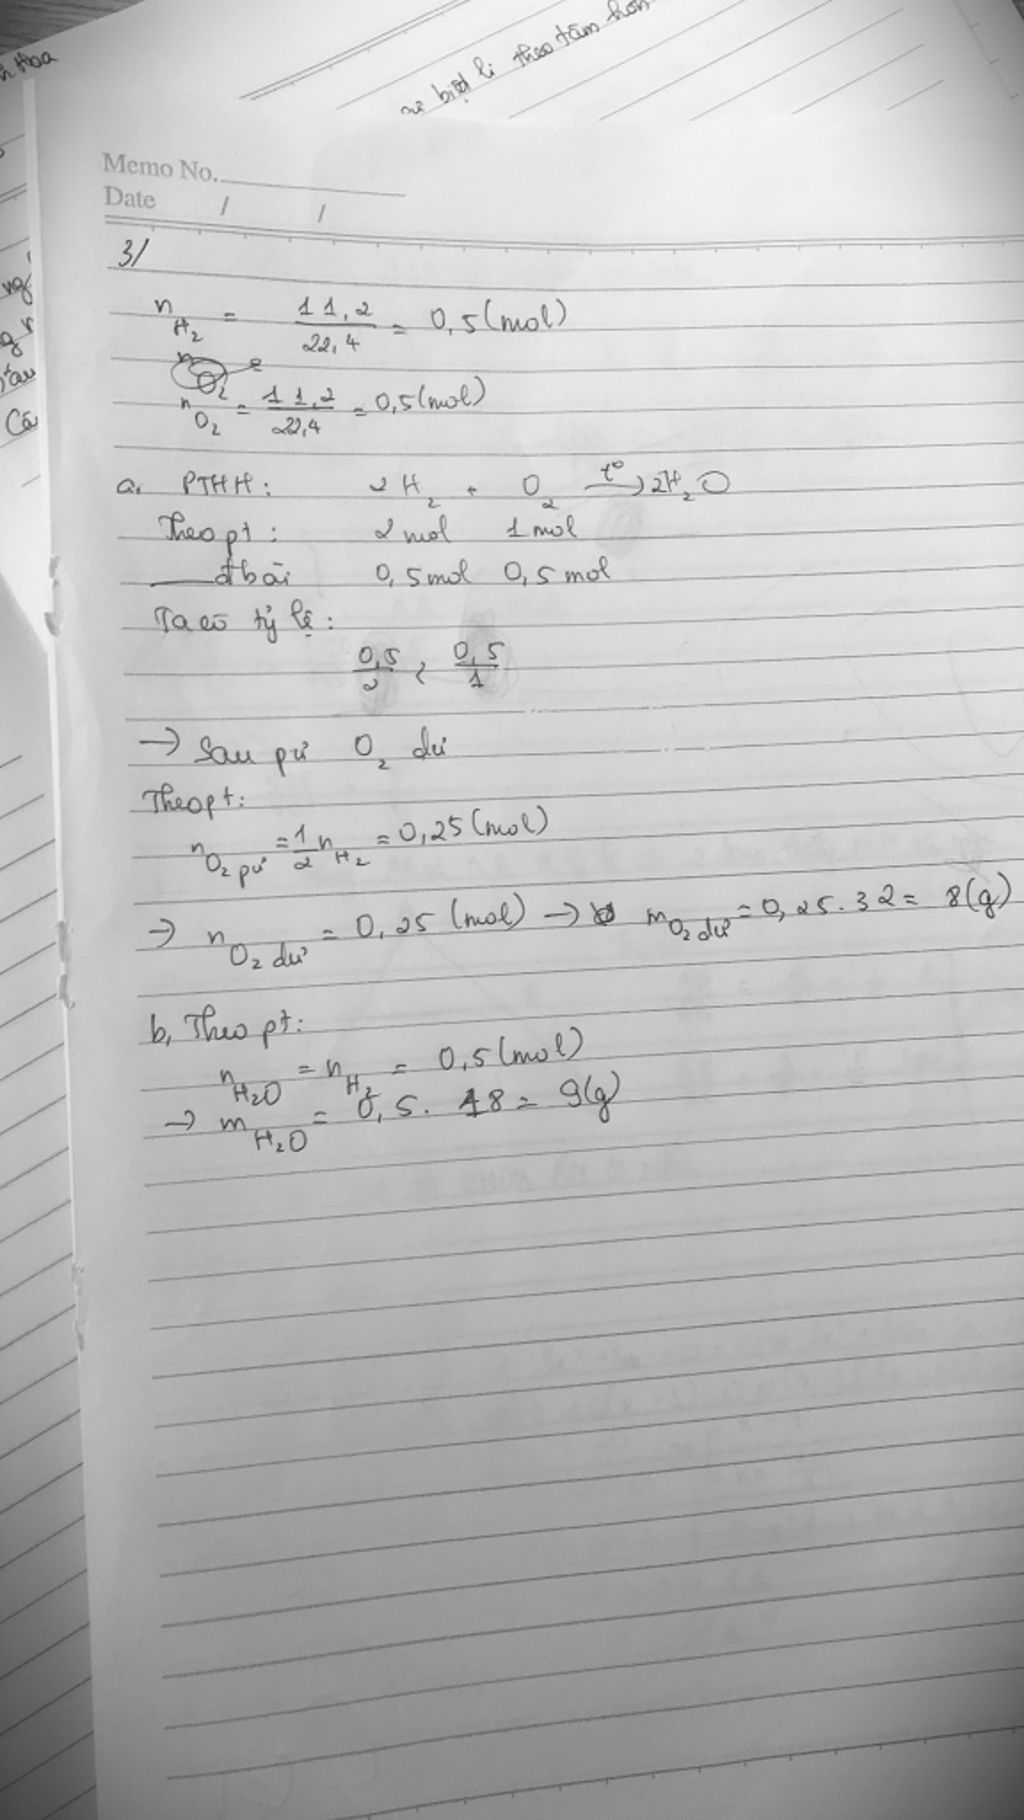 n Hoa
biệt li theo tâm hồn
Memo No.
Date / /
3/
n H₂ = 11,2 / 22,4 = 0,5 (mol)
n O₂ = 11,2 / 22,4 = 0,5 (mol)
a. PTHH: 2H₂ + O₂ t° → 2H₂O
Theo pt: 2 mol 1 mol
___ đbài 0,5 mol 0,5 mol
Ta có tỷ lệ:
0,5/2 < 0,5/1
→ Sau pứ O₂ dư
Theo pt:
n O₂ pứ = 1/2 n H₂ = 0,25 (mol)
→ n O₂ dư = 0,25 (mol) → m O₂ dư = 0,25 . 32 = 8 (g)
b, Theo pt:
n H₂O = n H₂ = 0,5 (mol)
→ m H₂O = 0,5 . 18 = 9 (g)